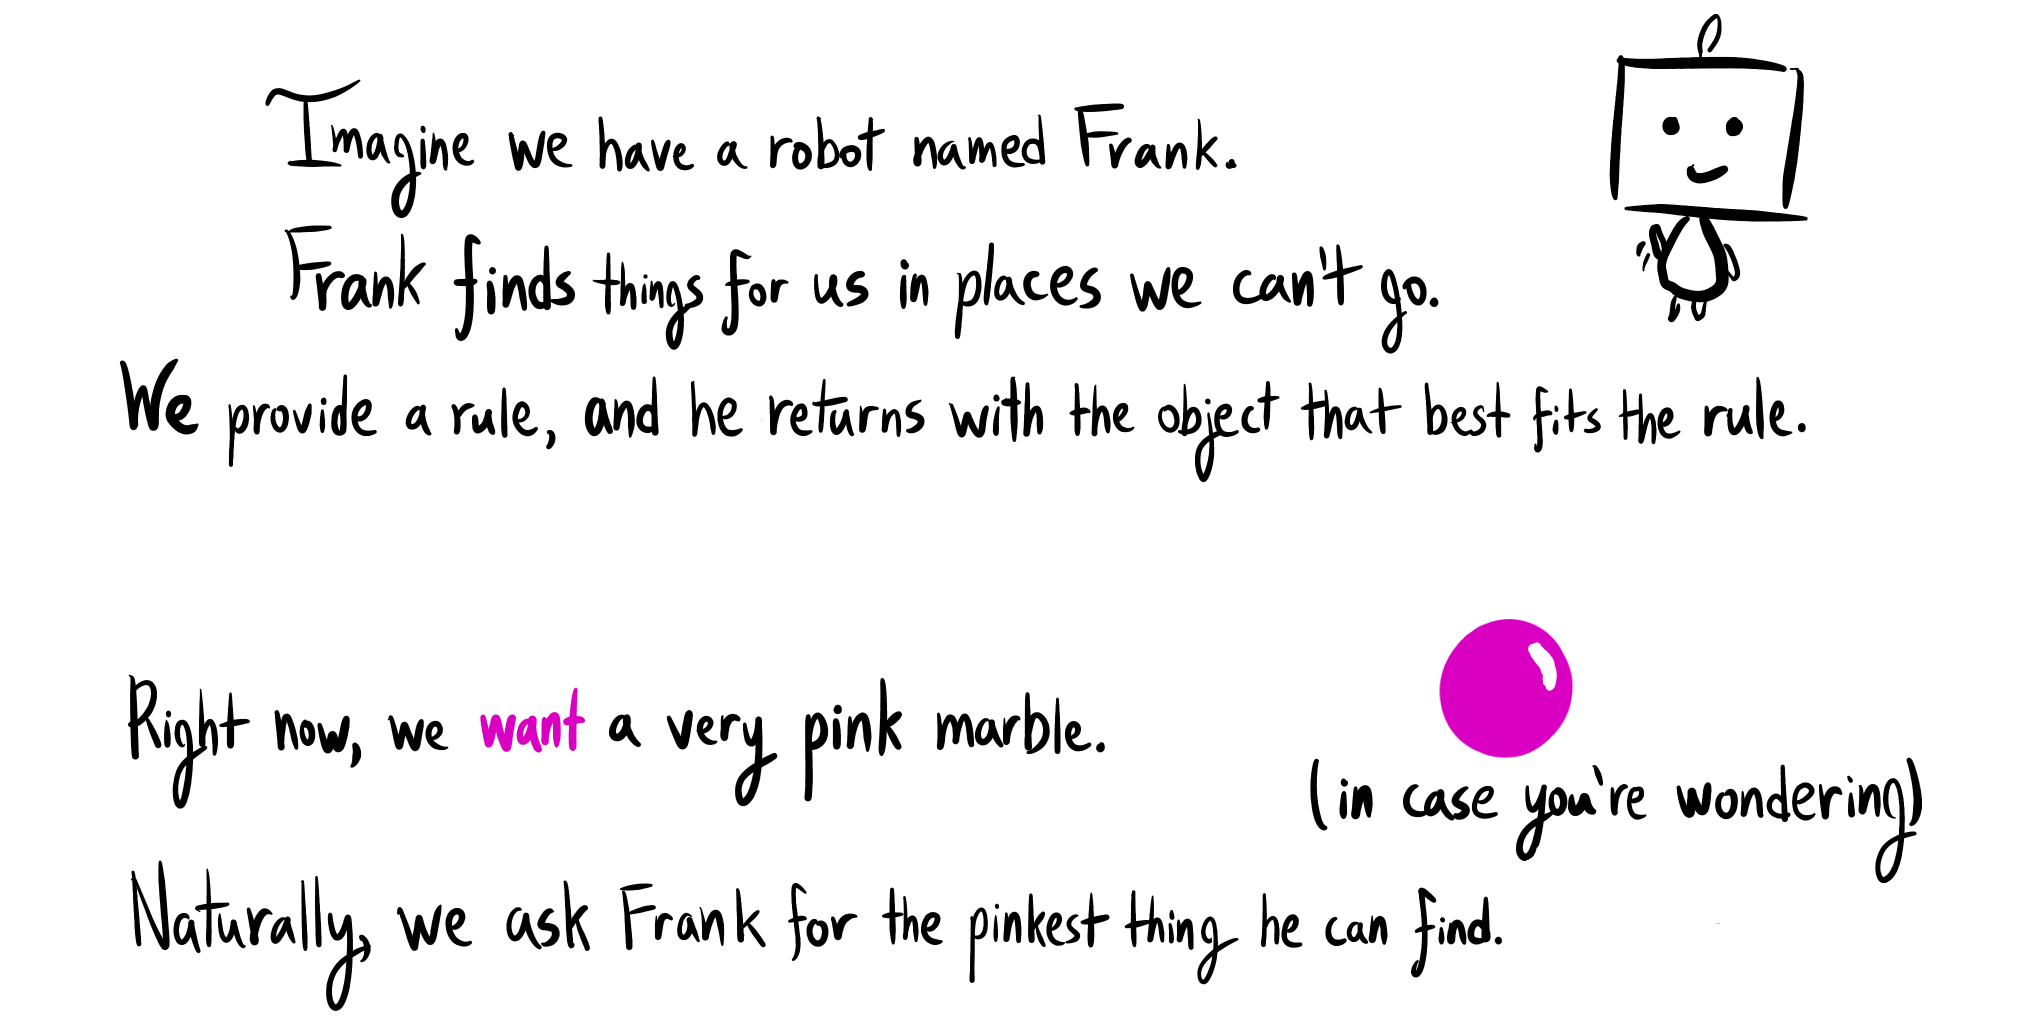 Imagine we have a robot named Frank.
Frank finds things for us in places we can't go.
We provide a rule, and he returns with the object that best fits the rule.
Right now, we want a very pink marble.
(in case you're wondering)
Naturally, we ask Frank for the pinkest thing he can find.